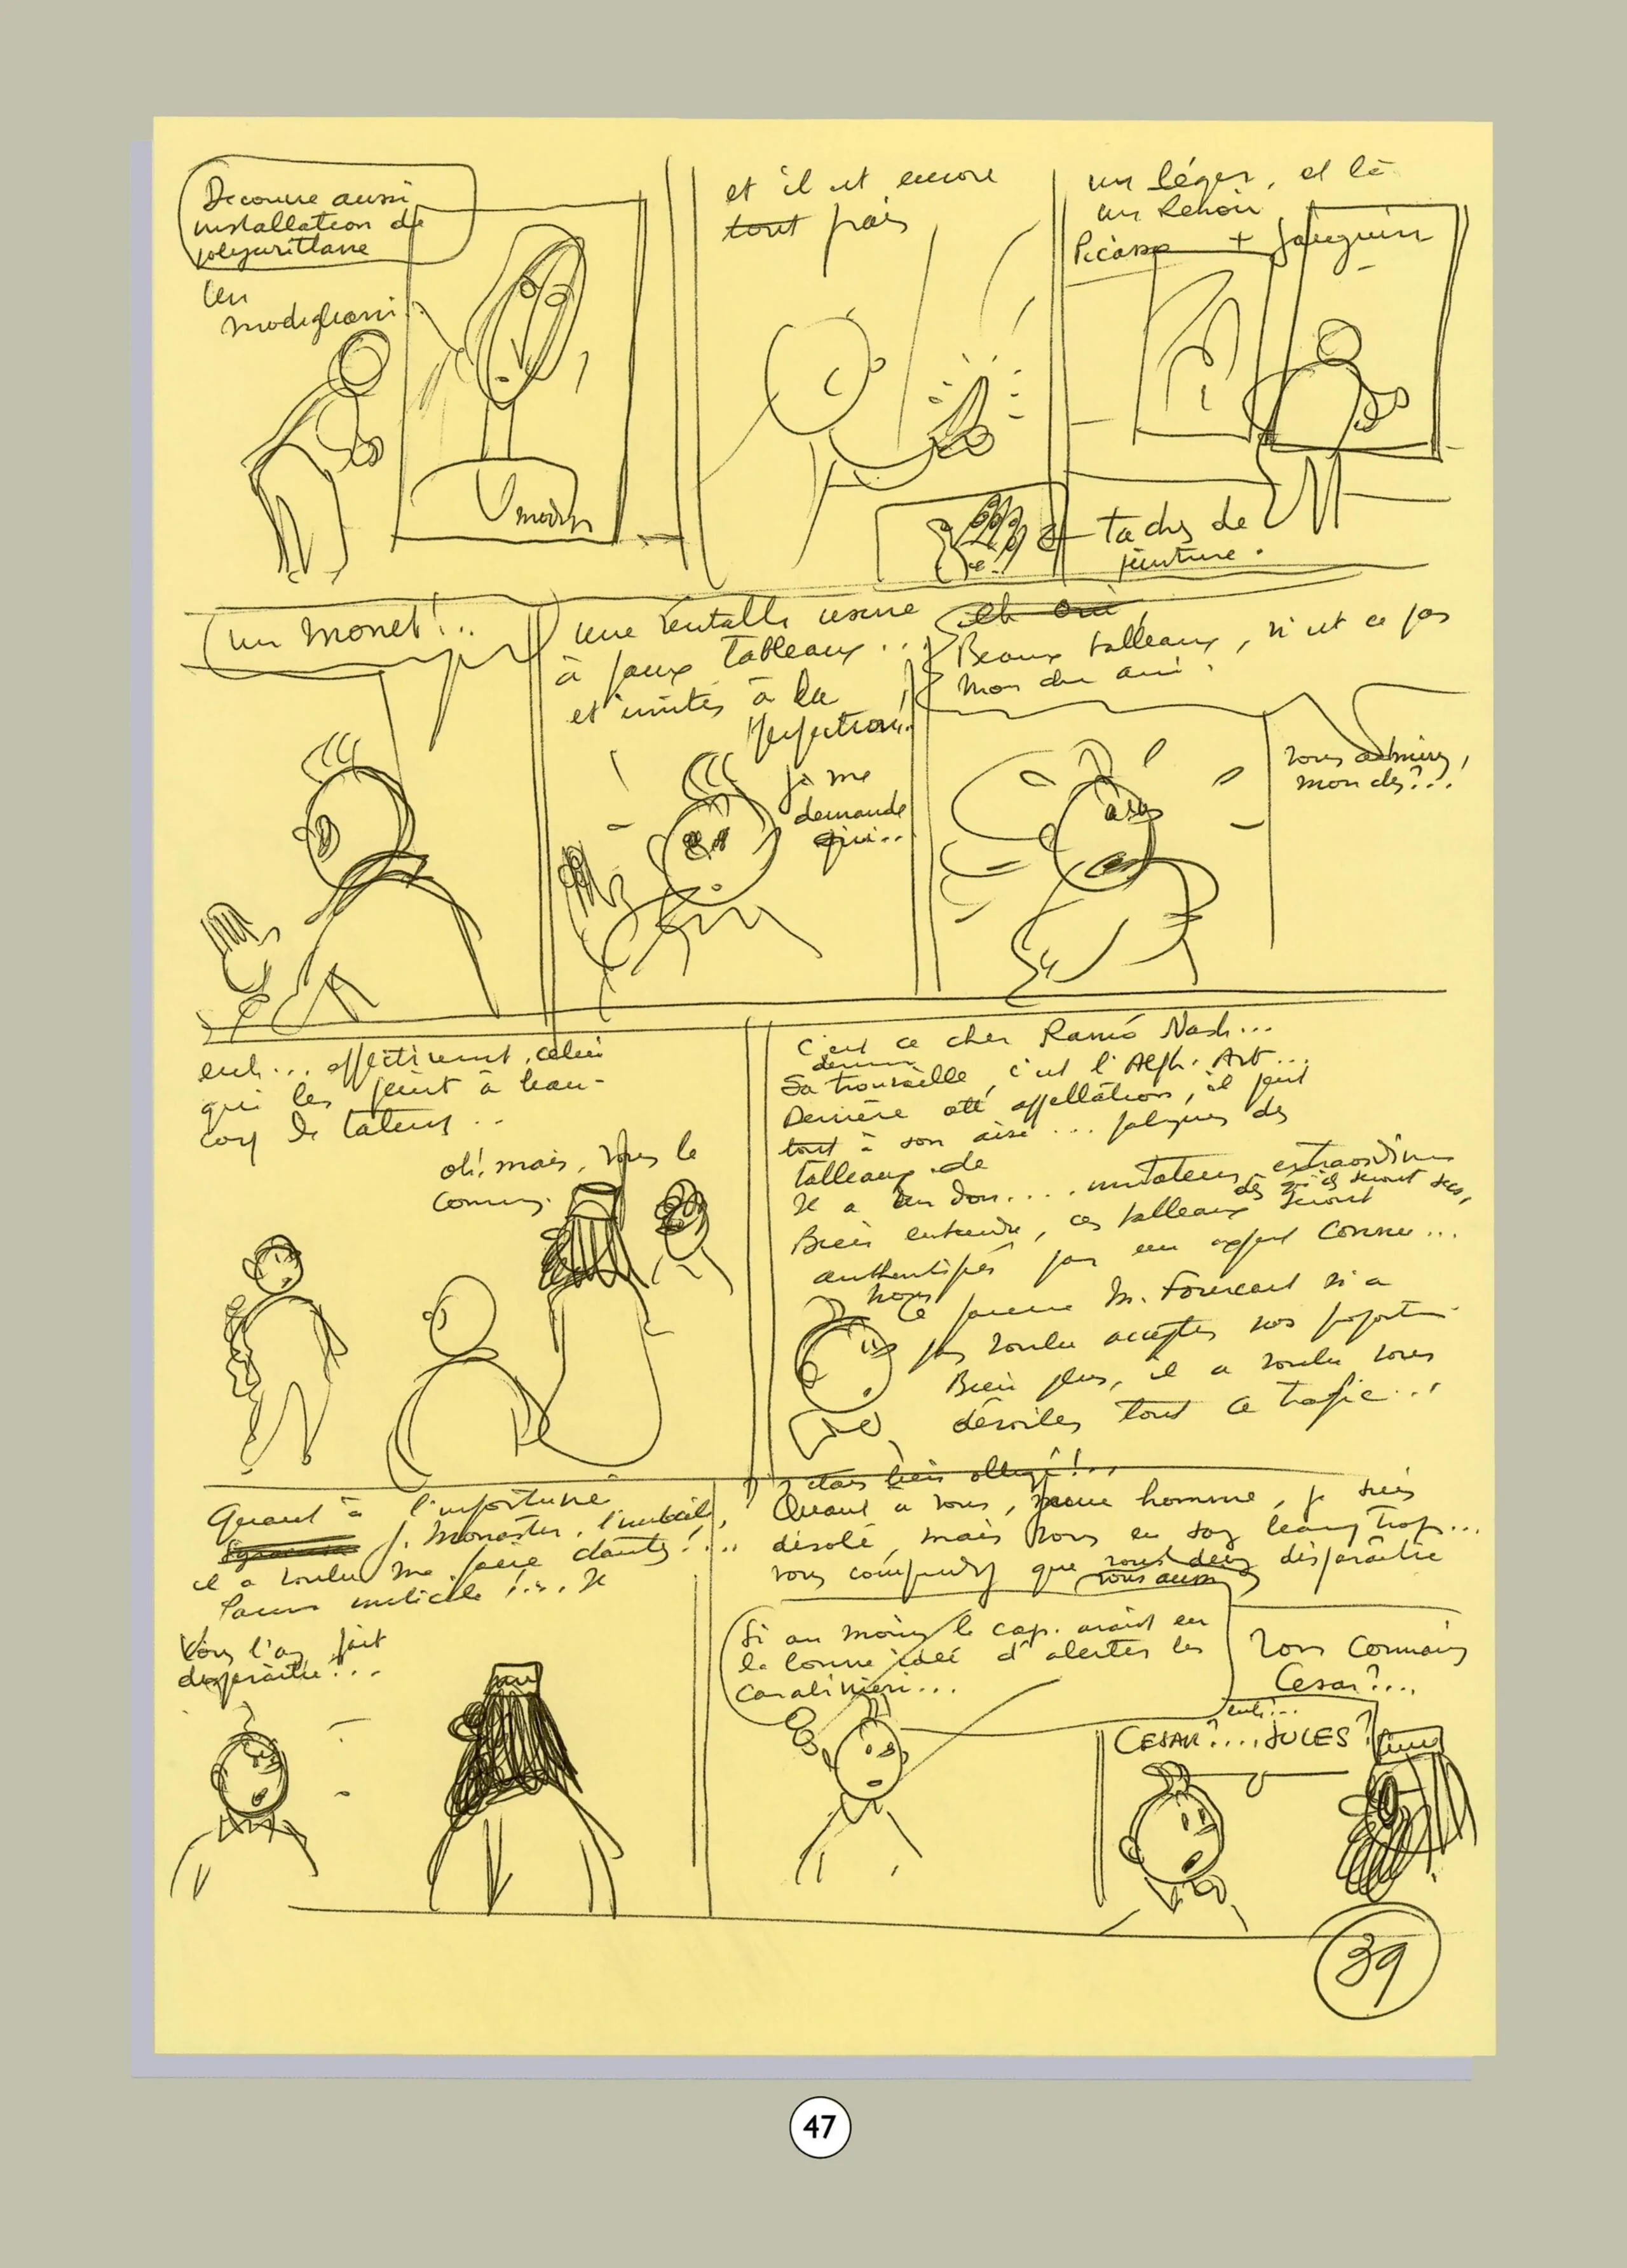 Découvre aussi
installation de
polyuréthane
Un
modigliani
modi
et il est encore
tout frais
un léger, et là
un Renoir
Picasso + Gauguin
taches de
peinture.
un Monet!..
une véritable usine
à faux tableaux...
et imités à la
perfection!
je me
demande
qui...
eh oui,
Beaux tableaux, n'est ce pas
mon cher ami?
vous admirez,
mon cher?...
euh... effectivement, celui
qui les peint à beau-
coup de talent...
oh! mais, vous le
connaissez.
C'est ce cher Ramó Nash...
dernière
Sa trouvaille, c'est l'Alph-Art...
Derrière cette appellation, il peut
tout à son aise... fabriquer des
tableaux de
Il a un don.... imitateur extraordinaire
dès qu'ils seront secs,
Bien entendu, ces tableaux seront
authentifiés par un expert connu...
nous
Ce pauvre M. Fourcart n'a
pas voulu accepter nos
Bien plus, il a voulu vous
dévoiler tout ce trafic...!
Quant à l'infortuné
J. Monastir, l'imbécile,
il a voulu me faire chanter!...
Vous l'avez fait
disparaître!...
étais bien obligé!...
Quant à vous, jeune homme, je suis
désolé, mais vous en savez beaucoup trop...
vous comprendrez que vous devez disparaître
vous aussi
Si au moins le cap. avait eu
la bonne idée d'alerter les
carabinieri...
Vous connaissez
Cesar?....
euh...
CESAR?....JULES?
39
47